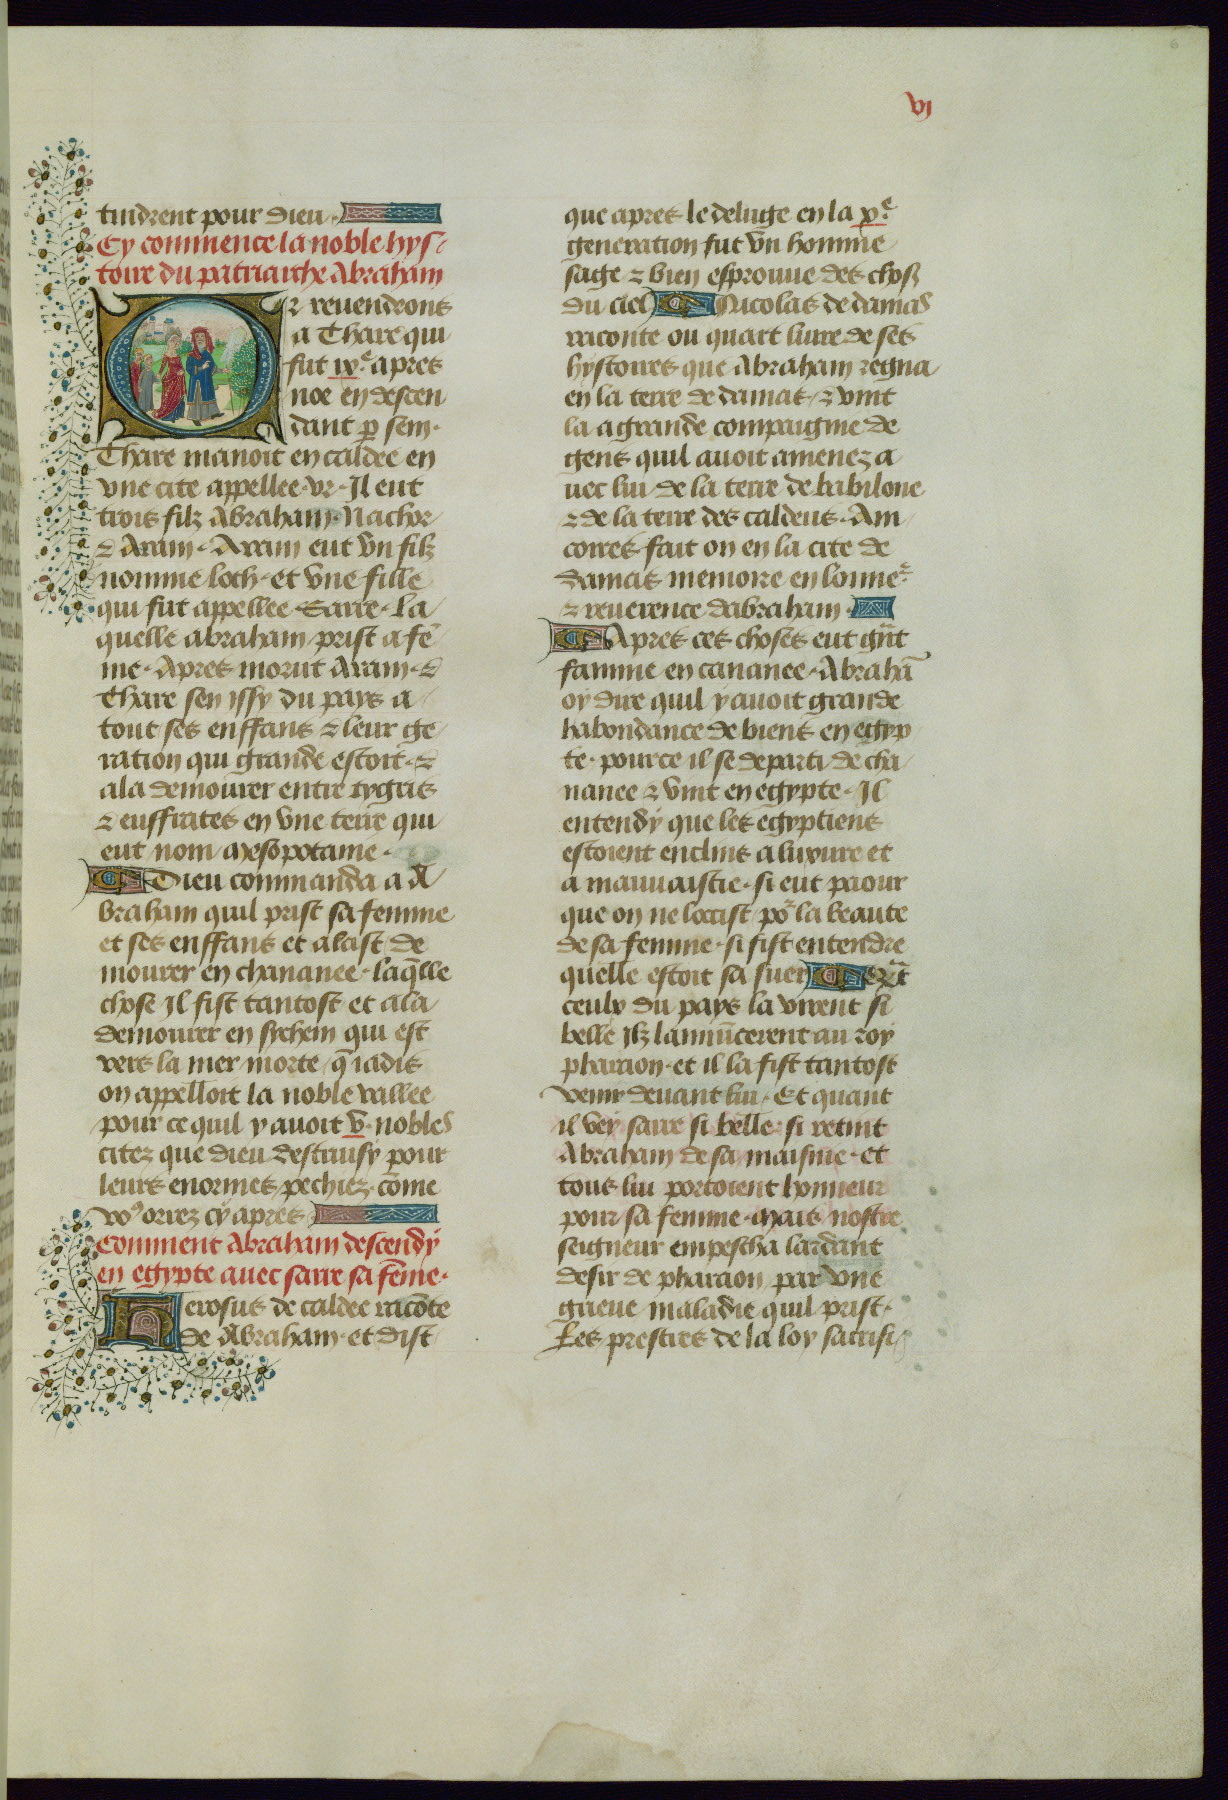 vj
tindrent pour dieu
Cy commence la noble hys-
toire du patriarche Abraham
Or revendrons
a Thare qui
fut ixe. apres
noe en descen
dant p sem.
Thare manoit en caldee en
vne cite appellee .vr. Il eut
trois filz Abraham. Nachor
& Aram. Aram eut vn filz
nomme loth. et vne fille
qui fut appellee Sarre. la
quelle abraham prist a fē
me. Apres morut Aram. &
Thare sen issy du pays a
tout ses enffans & leur ge
ration qui grande estoit. &
ala demourer entre tygris
& euffrates en vne terre qui
eut nom mesopotame.
Dieu commanda a A
braham quil prist sa femme
et ses enffans et alast de
mourer en chananee. laq̄lle
chose Il fist tantost et ala
demourer en sychem qui est
vers la mer morte / q̄ iadis
on appelloit la noble vallee
pour ce quil y auoit .v. nobles
citez que dieu destrusy pour
leurs enormes pechiez. cōme
vo9 orrez cy apres
Comment Abraham descendy
en egypte auec sarre sa fēme.
Herosus de caldee racōte
de Abraham. et dist
que apres le deluge en la xe.
generation fut vn homme
sage & bien esprouue des chos
du ciel Nicolas de damas
raconte ou quart liure de ses
hystoires que Abraham regna
en la terre de damas. & vint
la a grande compaignie de
gens quil auoit amenez a
uec lui de la terre de babilone
& de la terre des caldeus. Am
cores fait on en la cite de
damas memoire en lonner
& reuerence dabraham.
Apres ces choses eut grāt
famine en cananee. Abrahā
oy dire quil y auoit grande
habondance de biens en egyp
te. pource il se departi de cha
nanee & vint en egypte. Il
entendy que les egyptiens
estoient enclins a luxure et
a mauuaistie. si eut paour
que on ne loccist / por la beaute
de sa femme. si fist entendre
quelle estoit sa suer Et qāt
ceulx du pays la virent si
belle Ilz lannūcerent au roy
pharaon. et il la fist tantost
venir deuant lui. Et quant
il vey sarre si belle. si retint
Abraham de sa maisnie. et
tous lui portoient honneur
pour sa femme. mais nostre
seigneur empescha lardant
desir de pharaon par vne
grieue maladie quil prist.
Les prestres de la loy sacrifi